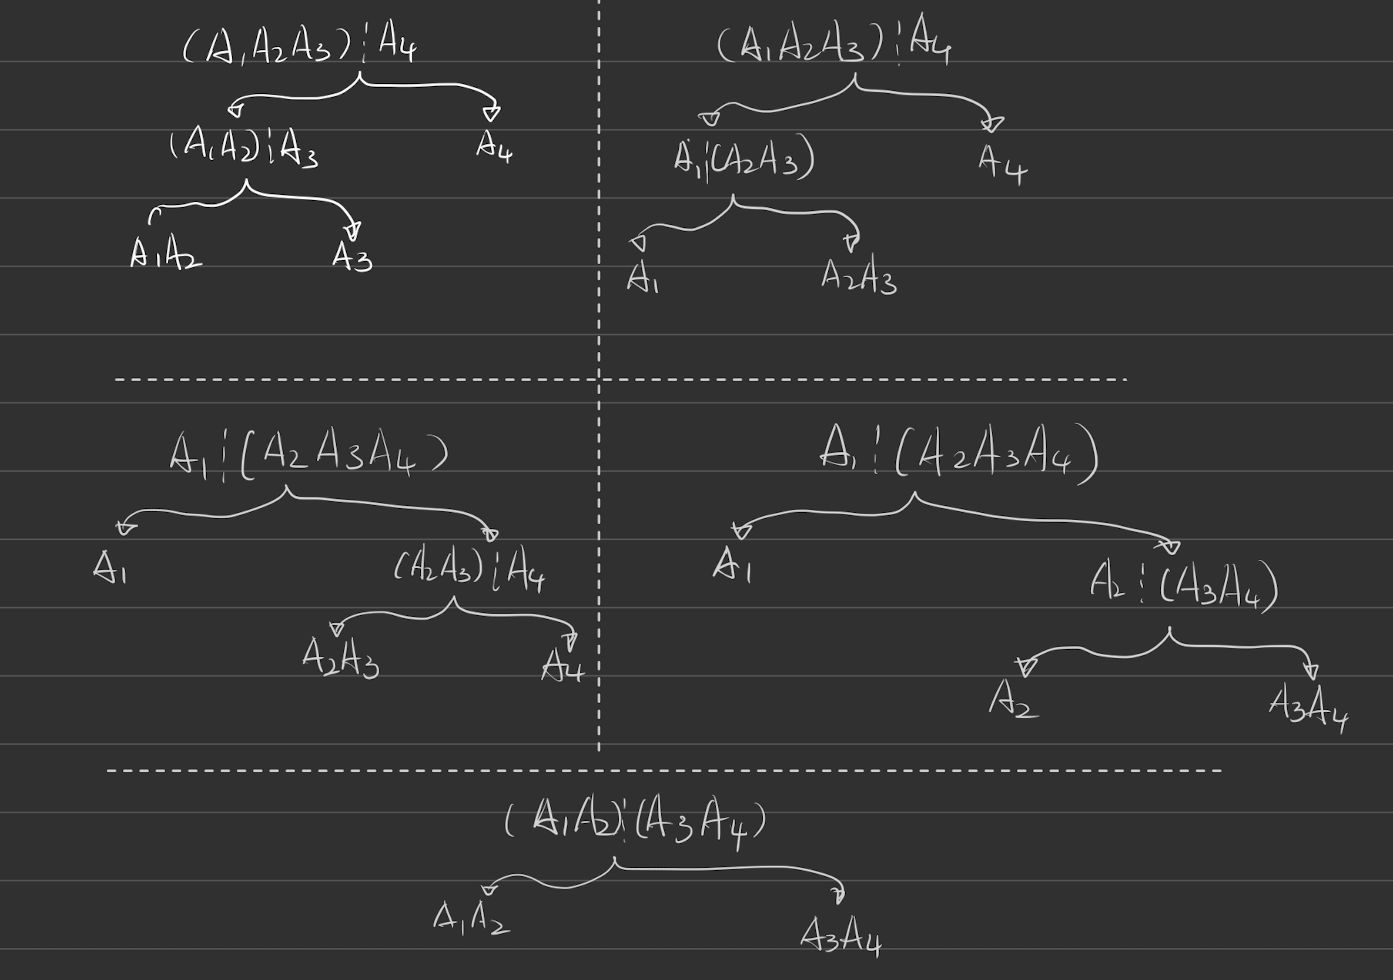 (A₁A₂A₃)¦A₄
(A₁A₂)¦A₃ A₄
A₁A₂ A₃
(A₁A₂A₃)¦A₄
A₁¦(A₂A₃) A₄
A₁ A₂A₃
A₁¦(A₂A₃A₄)
A₁ (A₂A₃)¦A₄
A₂A₃ A₄
A₁¦(A₂A₃A₄)
A₁ A₂¦(A₃A₄)
A₂ A₃A₄
(A₁A₂)¦(A₃A₄)
A₁A₂ A₃A₄